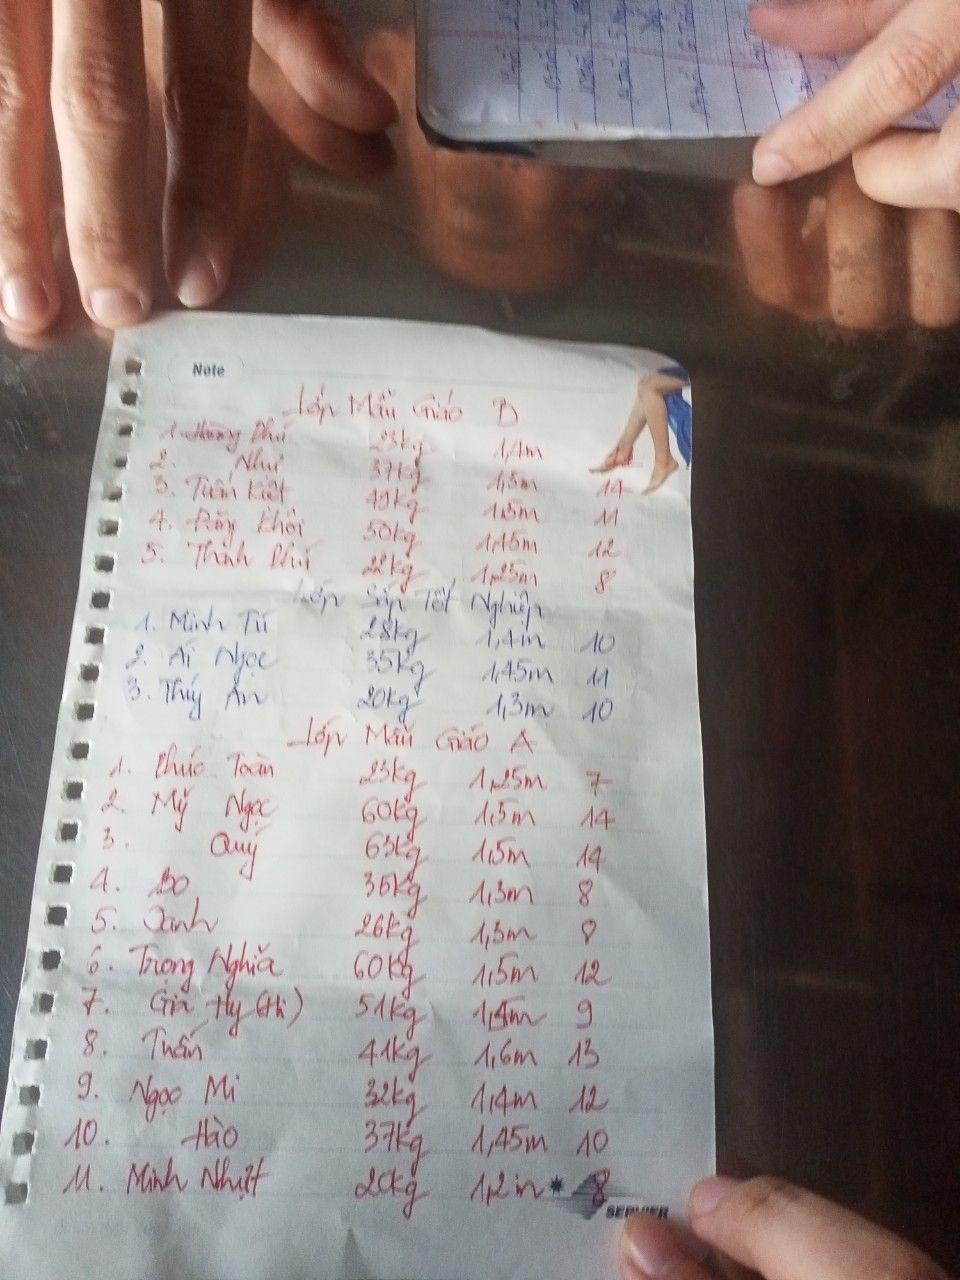 Note
Lớp Mẫu Giáo B
1. Hoàng Phú 23kg 1,4m
2. Như 37kg 1,5m 14
3. Tuấn Kiệt 49kg 1,5m 11
4. Đăng Khôi 50kg 1,45m 12
5. Thành Phú 22kg 1,25m 8
Lớp Sắp Tốt Nghiệp
1. Minh Tú 28kg 1,4m 10
2. Ái Ngọc 35kg 1,45m 11
3. Thúy An 20kg 1,3m 10
Lớp Mẫu Giáo A
1. Phúc Toàn 23kg 1,25m 7
2. Mỹ Ngọc 60kg 1,5m 14
3. Quý 63kg 1,5m 14
4. Bo 36kg 1,3m 8
5. Oanh 26kg 1,3m 8
6. Trọng Nghĩa 60kg 1,5m 12
7. Gia Hy (Hi) 51kg 1,4m 9
8. Tuấn 41kg 1,6m 13
9. Ngọc Mi 32kg 1,4m 12
10. Hào 37kg 1,45m 10
11. Minh Nhựt 20kg 1,2m 8
SERVIER